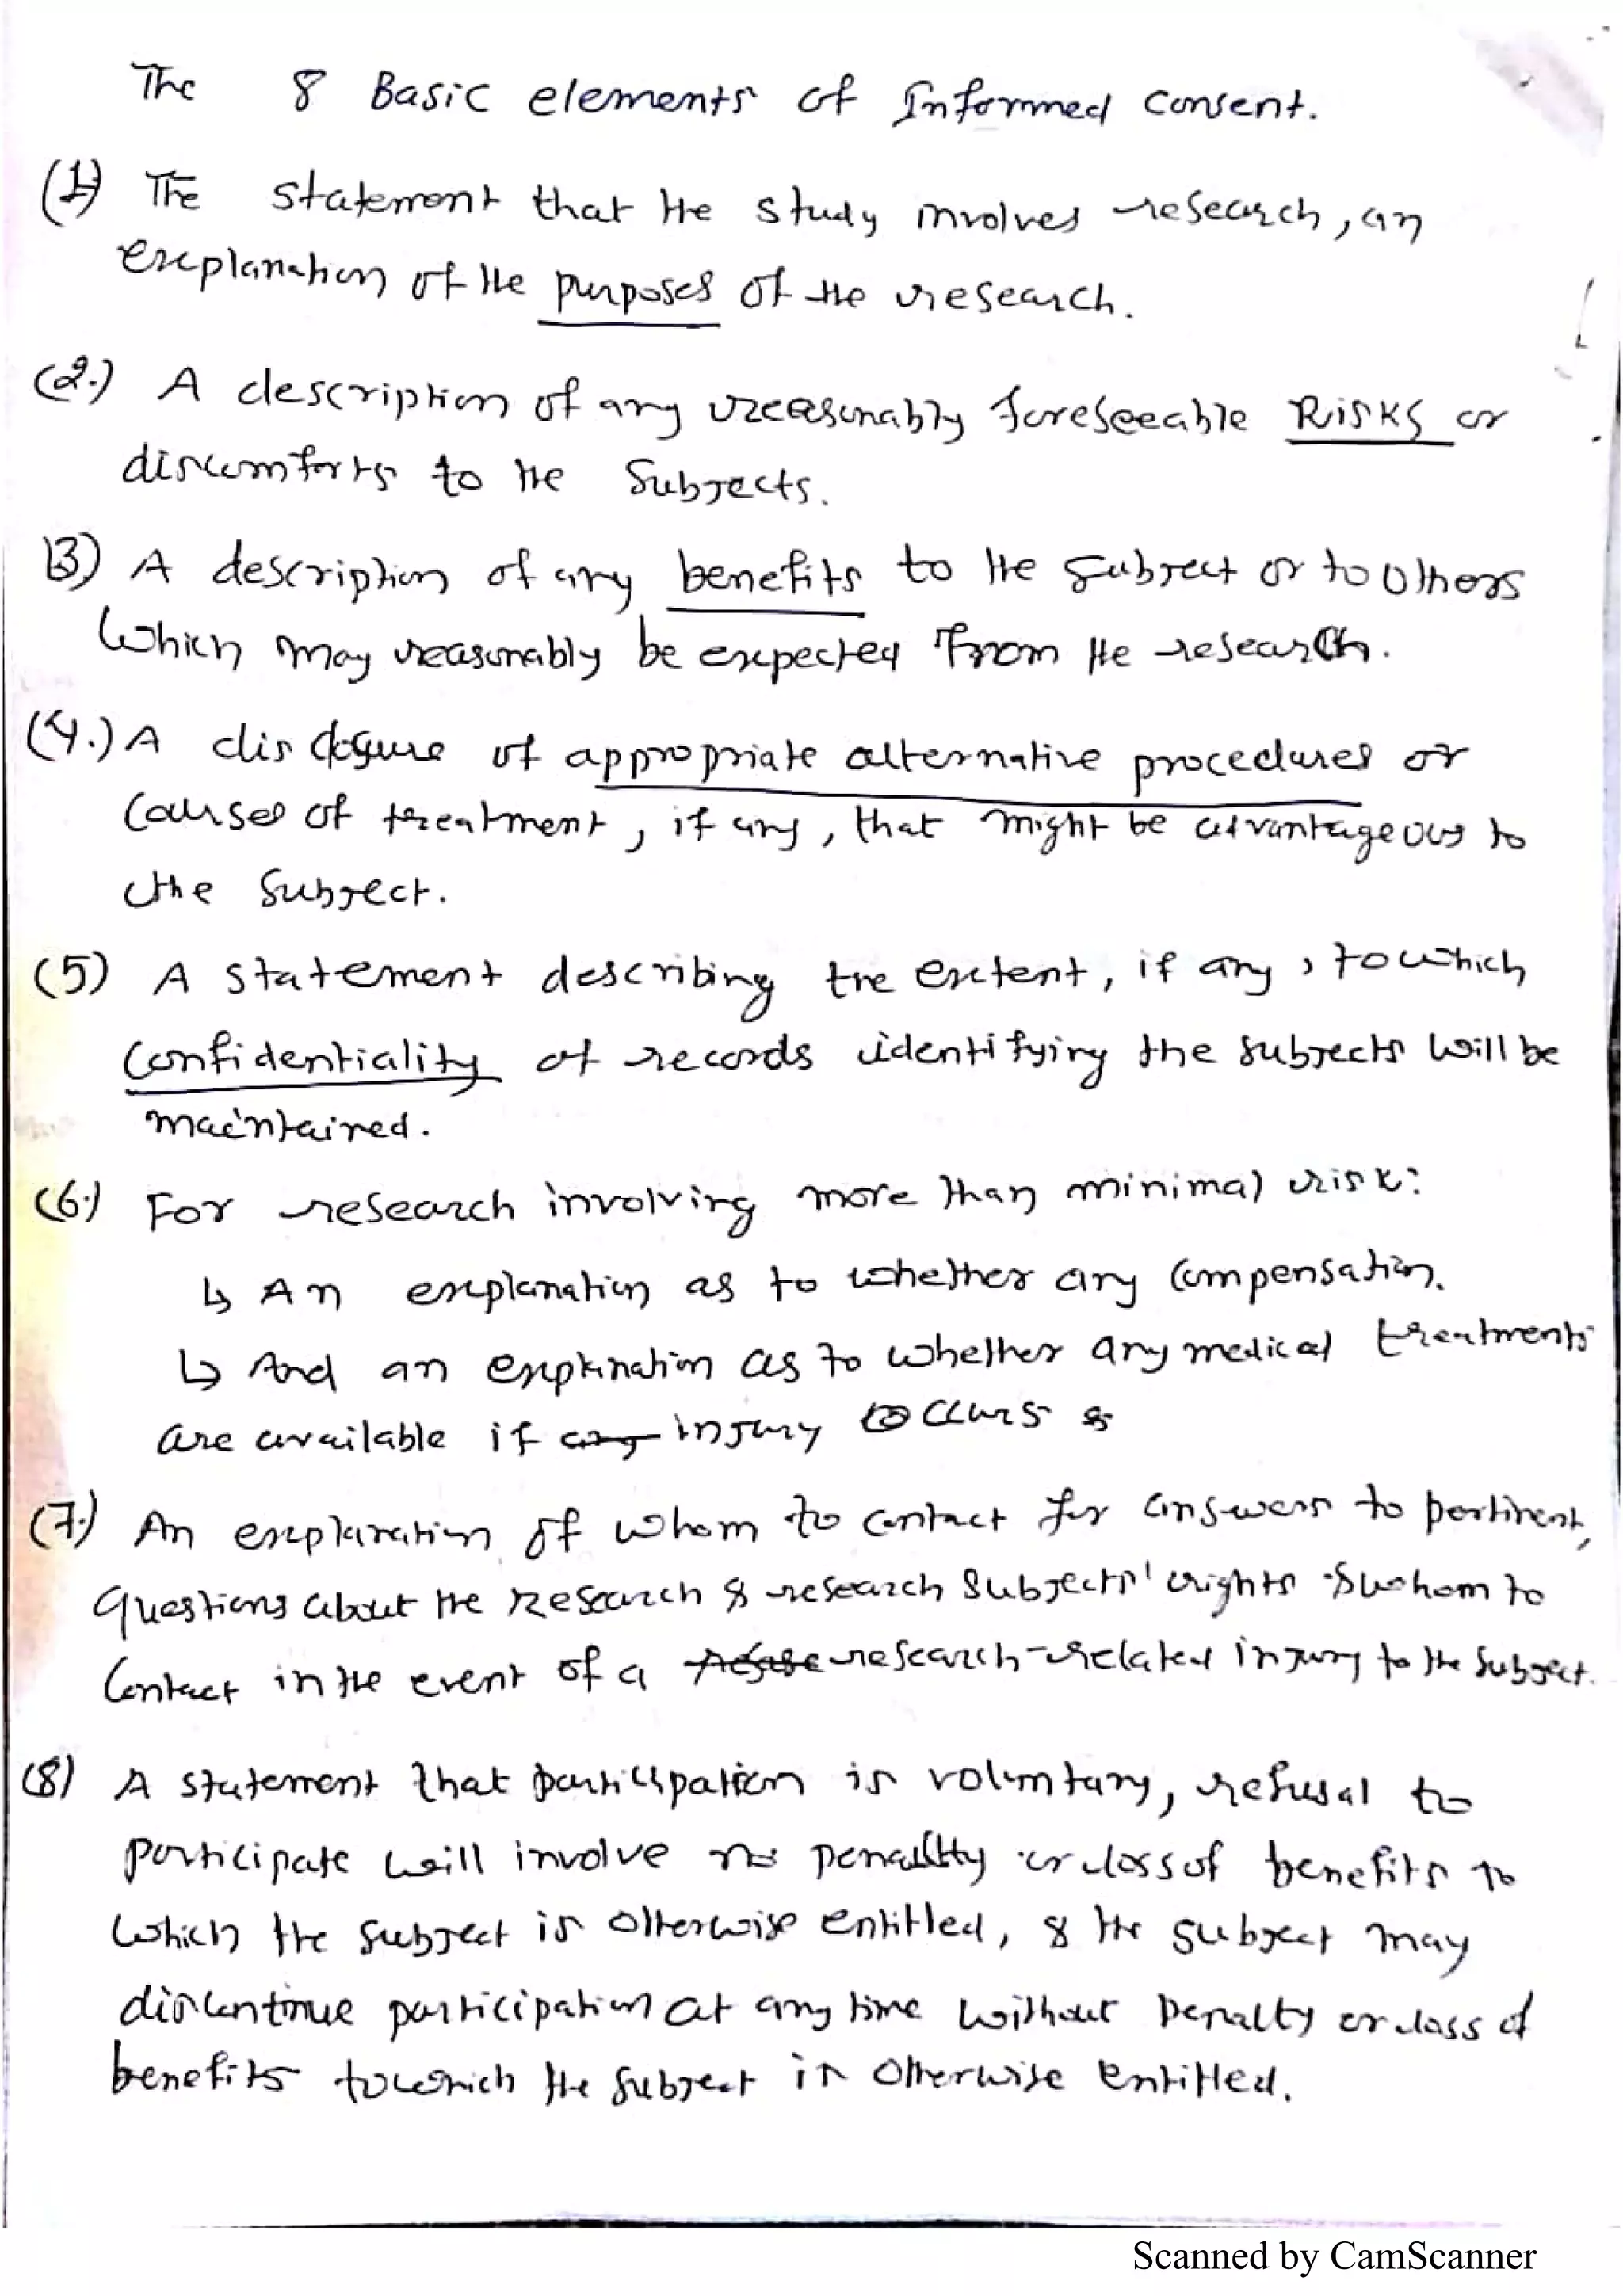 The 8 Basic elements of Informed Consent.
(1) The statement that the study involves research, an
explanation of the purposes of the research.
(2.) A description of any reasonably foreseeable RISKS or
discomforts to the Subjects.
(3) A description of any benefits to the subject or to others
which may reasonably be expected from the research.
(4.) A disclosure of appropriate alternative procedures or
Courses of treatment, if any, that might be advantageous to
the Subject.
(5) A statement describing the extent, if any, to which
Confidentiality of records identifying the subjects will be
maintained.
(6.) For research involving more than minimal risk:
↳ An explanation as to whether any compensation.
↳ And an explanation as to whether any medical treatments
are available if any injury occurs
(7.) An explanation of whom to contact for answers to pertinent,
questions about the Research & research Subjects' rights & whom to
Contact in the event of a research-related injury to the Subject.
(8) A statement that participation is voluntary, refusal to
participate will involve no penalty or loss of benefits to
which the subject is otherwise entitled, & the subject may
discontinue participation at any time without penalty or loss of
benefits to which the subject is otherwise entitled.
Scanned by CamScanner